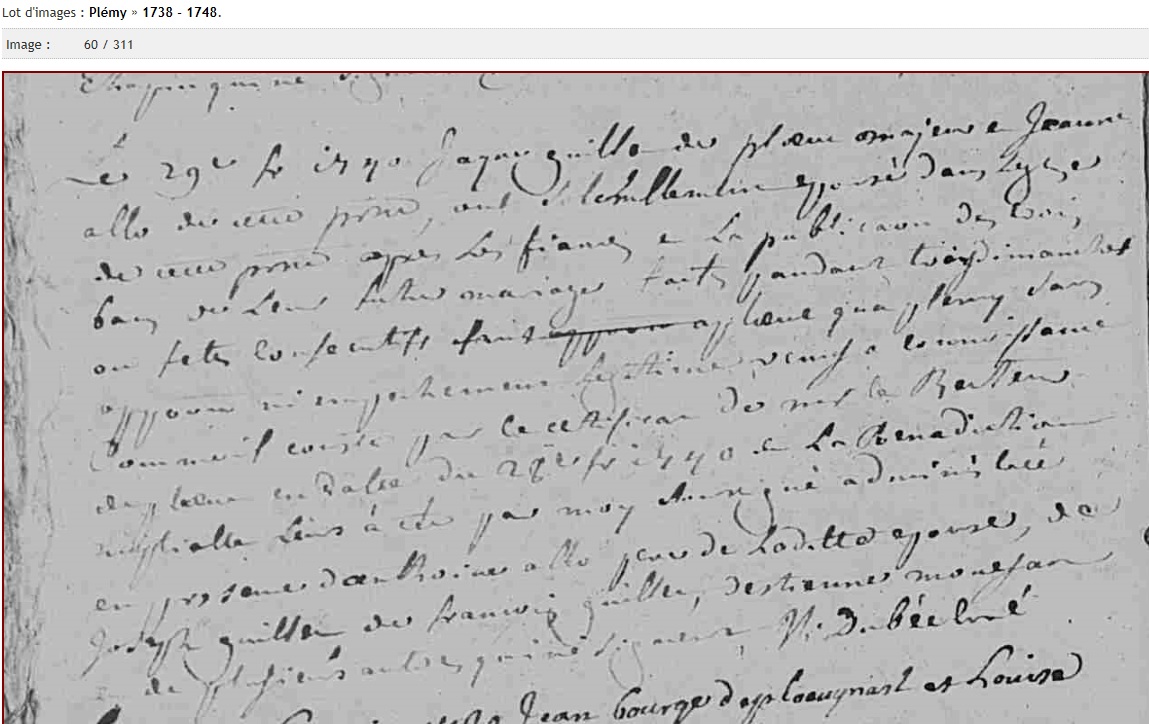 Lot d'images : Plémy » 1738 - 1748.
Image : 60 / 311
qui ne
Le 29e fr 1740 Jaque guille de plœuc majeur e Jeanne
allo de cette prsse, ont Solemnellement epousé dans L'eglize
de cette prsse après Les fiances e La publicaon des trois
bans de Leur futur mariage faits pandant trois dimanches
ou fetes Consecutifs a plœuc qu'a plemy sans
oppoon ni empechement legitime venus a connoissance
Comme il conste par le certificat de mr le Recteur
de plœuc en datte du 28e fr 1740 e La Benediction
nuptialle Leurs a ete par moy Sousigné administrée
en presence d'anthoine allo pere de Laditte epouse, de
Joseph guille de francois guille, d'estienne
e de plusieurs autres qui ne signent
Jean bourge de plœuc et Louise